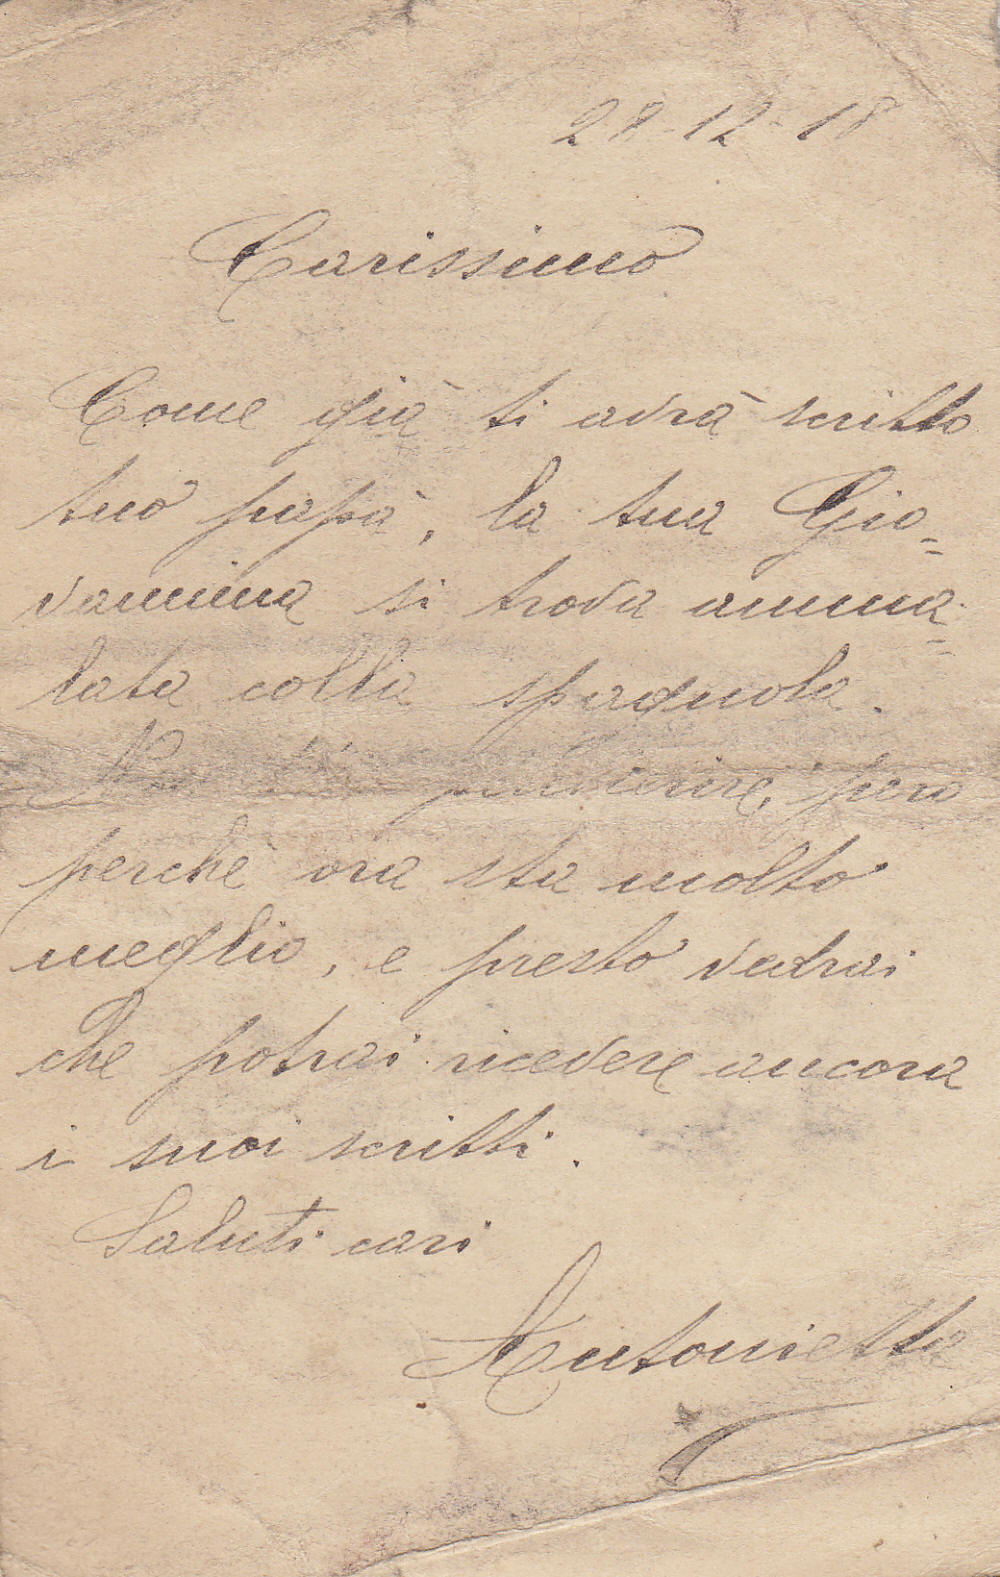 28-12-18
Carissimo
Come già ti avrà scritto
tuo papà, la tua Gio=
vannina si trova amma=
lata colla spagnola.
Non però
perchè ora sta molto
meglio, e presto vedrai
che potrai ricevere ancora
i suoi scritti.
Saluti cari
Antonietta